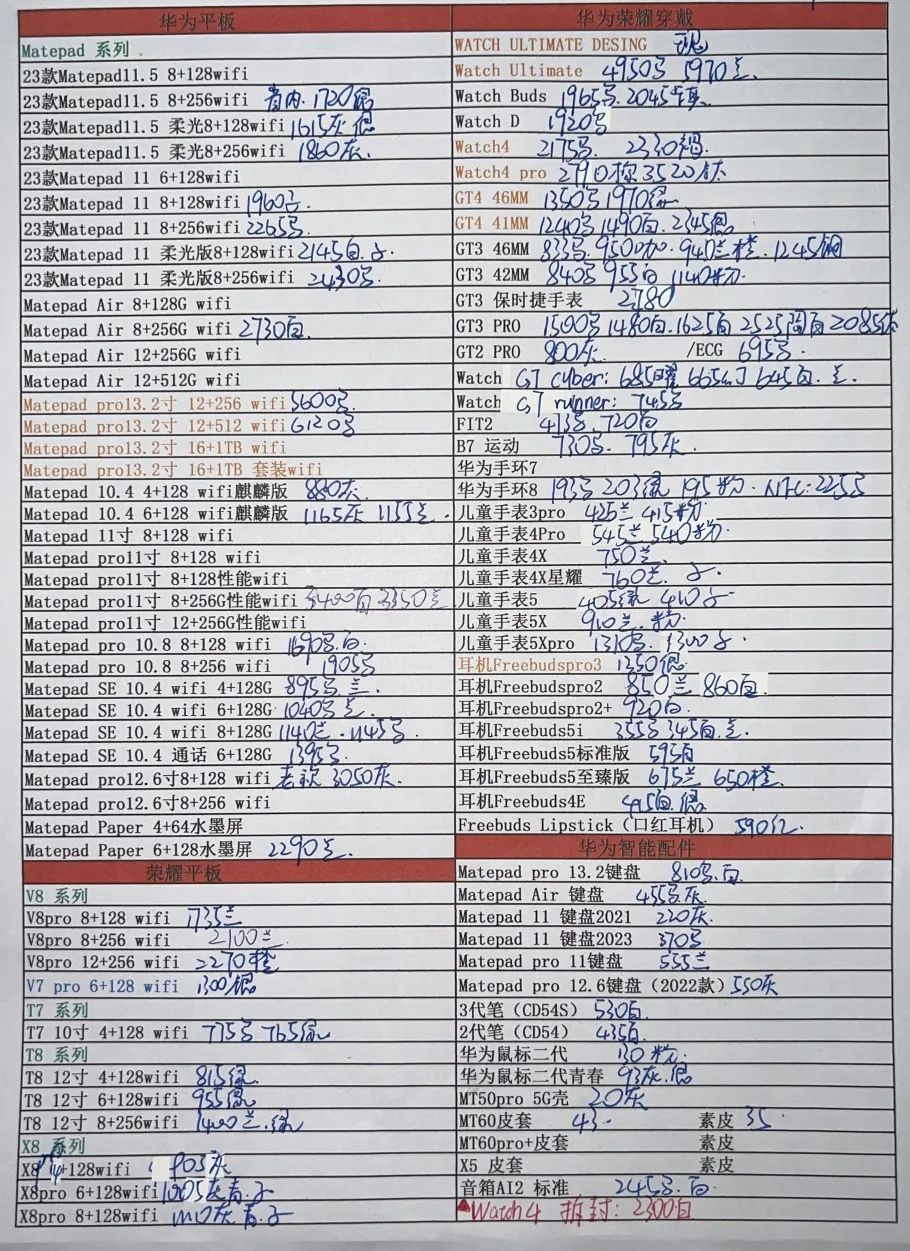 华为平板
Matepad 系列
23款Matepad11.5 8+128wifi
23款Matepad11.5 8+256wifi 1720银
23款Matepad11.5 柔光8+128wifi 1615灰 银
23款Matepad11.5 柔光8+256wifi 1860灰.
23款Matepad 11 6+128wifi
23款Matepad 11 8+128wifi 1960
23款Matepad 11 8+256wifi 2265
23款Matepad 11 柔光版8+128wifi 2145白.
23款Matepad 11 柔光版8+256wifi 2430
Matepad Air 8+128G wifi
Matepad Air 8+256G wifi 2730白.
Matepad Air 12+256G wifi
Matepad Air 12+512G wifi
Matepad pro13.2寸 12+256 wifi 5600
Matepad pro13.2寸 12+512 wifi 6120
Matepad pro13.2寸 16+1TB wifi
Matepad pro13.2寸 16+1TB 套装wifi
Matepad 10.4 4+128 wifi麒麟版 880灰.
Matepad 10.4 6+128 wifi麒麟版 1165灰 1155兰.
Matepad 11寸 8+128 wifi
Matepad pro11寸 8+128 wifi
Matepad pro11寸 8+128性能wifi
Matepad pro11寸 8+256G性能wifi 3400白 3350兰
Matepad pro11寸 12+256G性能wifi
Matepad pro 10.8 8+128 wifi 1690 白.
Matepad pro 10.8 8+256 wifi 1905
Matepad SE 10.4 wifi 4+128G 895 兰.
Matepad SE 10.4 wifi 6+128G 1040 兰.
Matepad SE 10.4 wifi 8+128G 1140兰. 1145
Matepad SE 10.4 通话 6+128G 1395
Matepad pro12.6寸8+128 wifi 老款 3050灰.
Matepad pro12.6寸8+256 wifi
Matepad Paper 4+64水墨屏
Matepad Paper 6+128水墨屏 2290兰.
荣耀平板
V8 系列
V8pro 8+128 wifi 1735兰
V8pro 8+256 wifi 2100兰
V8pro 12+256 wifi 2270橙
V7 pro 6+128 wifi 1300银
T7 系列
T7 10寸 4+128 wifi 775 765绿
T8 系列
T8 12寸 4+128wifi 815绿
T8 12寸 6+128wifi 955绿
T8 12寸 8+256wifi 1400兰.绿
X8 系列
X8pro 4+128wifi 905灰
X8pro 6+128wifi 1005灰青.
X8pro 8+128wifi 1110灰.青.
华为荣耀穿戴
WATCH ULTIMATE DESING 现
Watch Ultimate 4950 5970兰.
Watch Buds 1965 2045
Watch D 1920
Watch4 2175 2330褐.
Watch4 pro 2790棕 3520钛
GT4 46MM 1350 1970绿
GT4 41MM 1240 1490白. 2345银
GT3 46MM 833 950咖. 940兰橙. 1245钢
GT3 42MM 840 955白 1140粉
GT3 保时捷手表 2780
GT3 PRO 1500 1480白.1625 2525陶白 2085钛
GT2 PRO 800灰 /ECG 695
Watch GT cyber: 685曜 665幻 645白.兰.
Watch GT runner: 745
FIT2 413 720白
B7 运动 730 795灰
华为手环7
华为手环8 193 203绿 195粉. NFC:225
儿童手表3pro 425兰 415粉
儿童手表4Pro 545兰 540粉.
儿童手表4X 750兰.
儿童手表4X星耀 760兰.
儿童手表5 405绿 410
儿童手表5X 910兰.粉.
儿童手表5Xpro 1310 1300
耳机Freebudspro3 1250银
耳机Freebudspro2 850兰 860白.
耳机Freebudspro2+ 920白.
耳机Freebuds5i 355 345白.兰.
耳机Freebuds5标准版 595白
耳机Freebuds5至臻版 675兰 650橙.
耳机Freebuds4E 495白.银
Freebuds Lipstick（口红耳机） 590红.
华为智能配件
Matepad pro 13.2键盘 810 白.
Matepad Air 键盘 455 灰.
Matepad 11 键盘2021 220灰.
Matepad 11 键盘2023 370
Matepad pro 11键盘 555兰
Matepad pro 12.6键盘（2022款） 550灰
3代笔（CD54S） 530白.
2代笔（CD54） 435白.
华为鼠标二代 130粉.
华为鼠标二代青春 93灰.银
MT50pro 5G壳 20灰
MT60皮套 43. 素皮 35
MT60pro+皮套 素皮
X5 皮套 素皮
音箱AI2 标准 245 白.
Watch4 拆封: 2300白